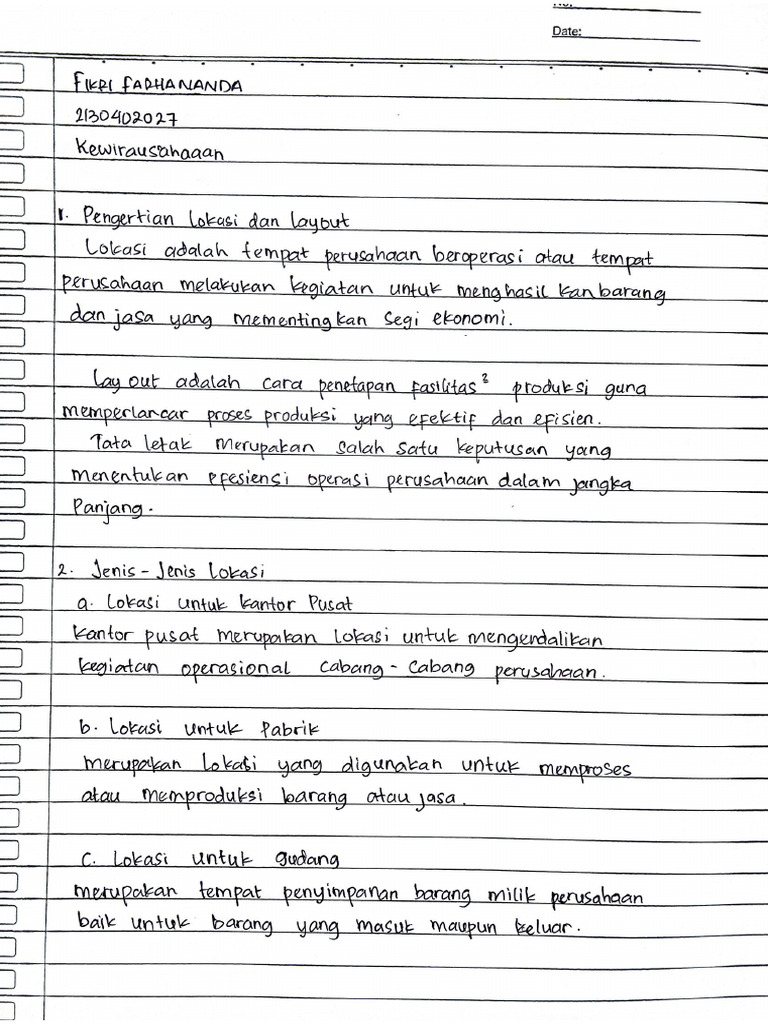 No:
Date:
FIKRI FADHANANDA
2130402027
Kewirausahaaan
1. Pengertian lokasi dan layout
Lokasi adalah tempat perusahaan beroperasi atau tempat
perusahaan melakukan kegiatan untuk menghasil kan barang
dan jasa yang mementingkan segi ekonomi.
Lay out adalah cara penetapan fasilitas² produksi guna
memperlancar proses produksi yang efektif dan efisien.
Tata letak merupakan salah satu keputusan yang
menentukan efesiensi operasi perusahaan dalam jangka
Panjang.
2. Jenis-Jenis Lokasi
a. Lokasi untuk kantor Pusat
Kantor pusat merupakan lokasi untuk mengendalikan
kegiatan operasional cabang-cabang perusahaan.
b. Lokasi untuk Pabrik
merupakan lokasi yang digunakan untuk memproses
atau memproduksi barang atau jasa.
C. Lokasi untuk gudang
merupakan tempat penyimpanan barang milik perusahaan
baik untuk barang yang masuk maupun keluar.